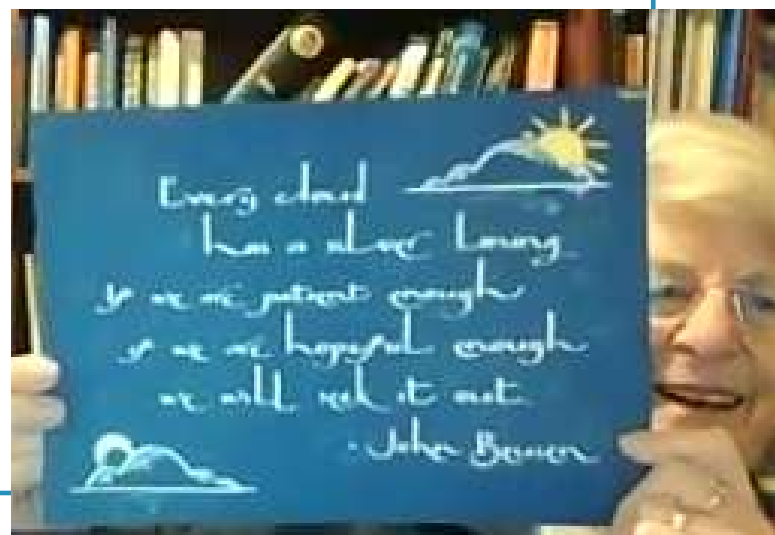 Every cloud
has a silver lining
if we are patient enough
if we are hopeful enough
we will seek it out
- John